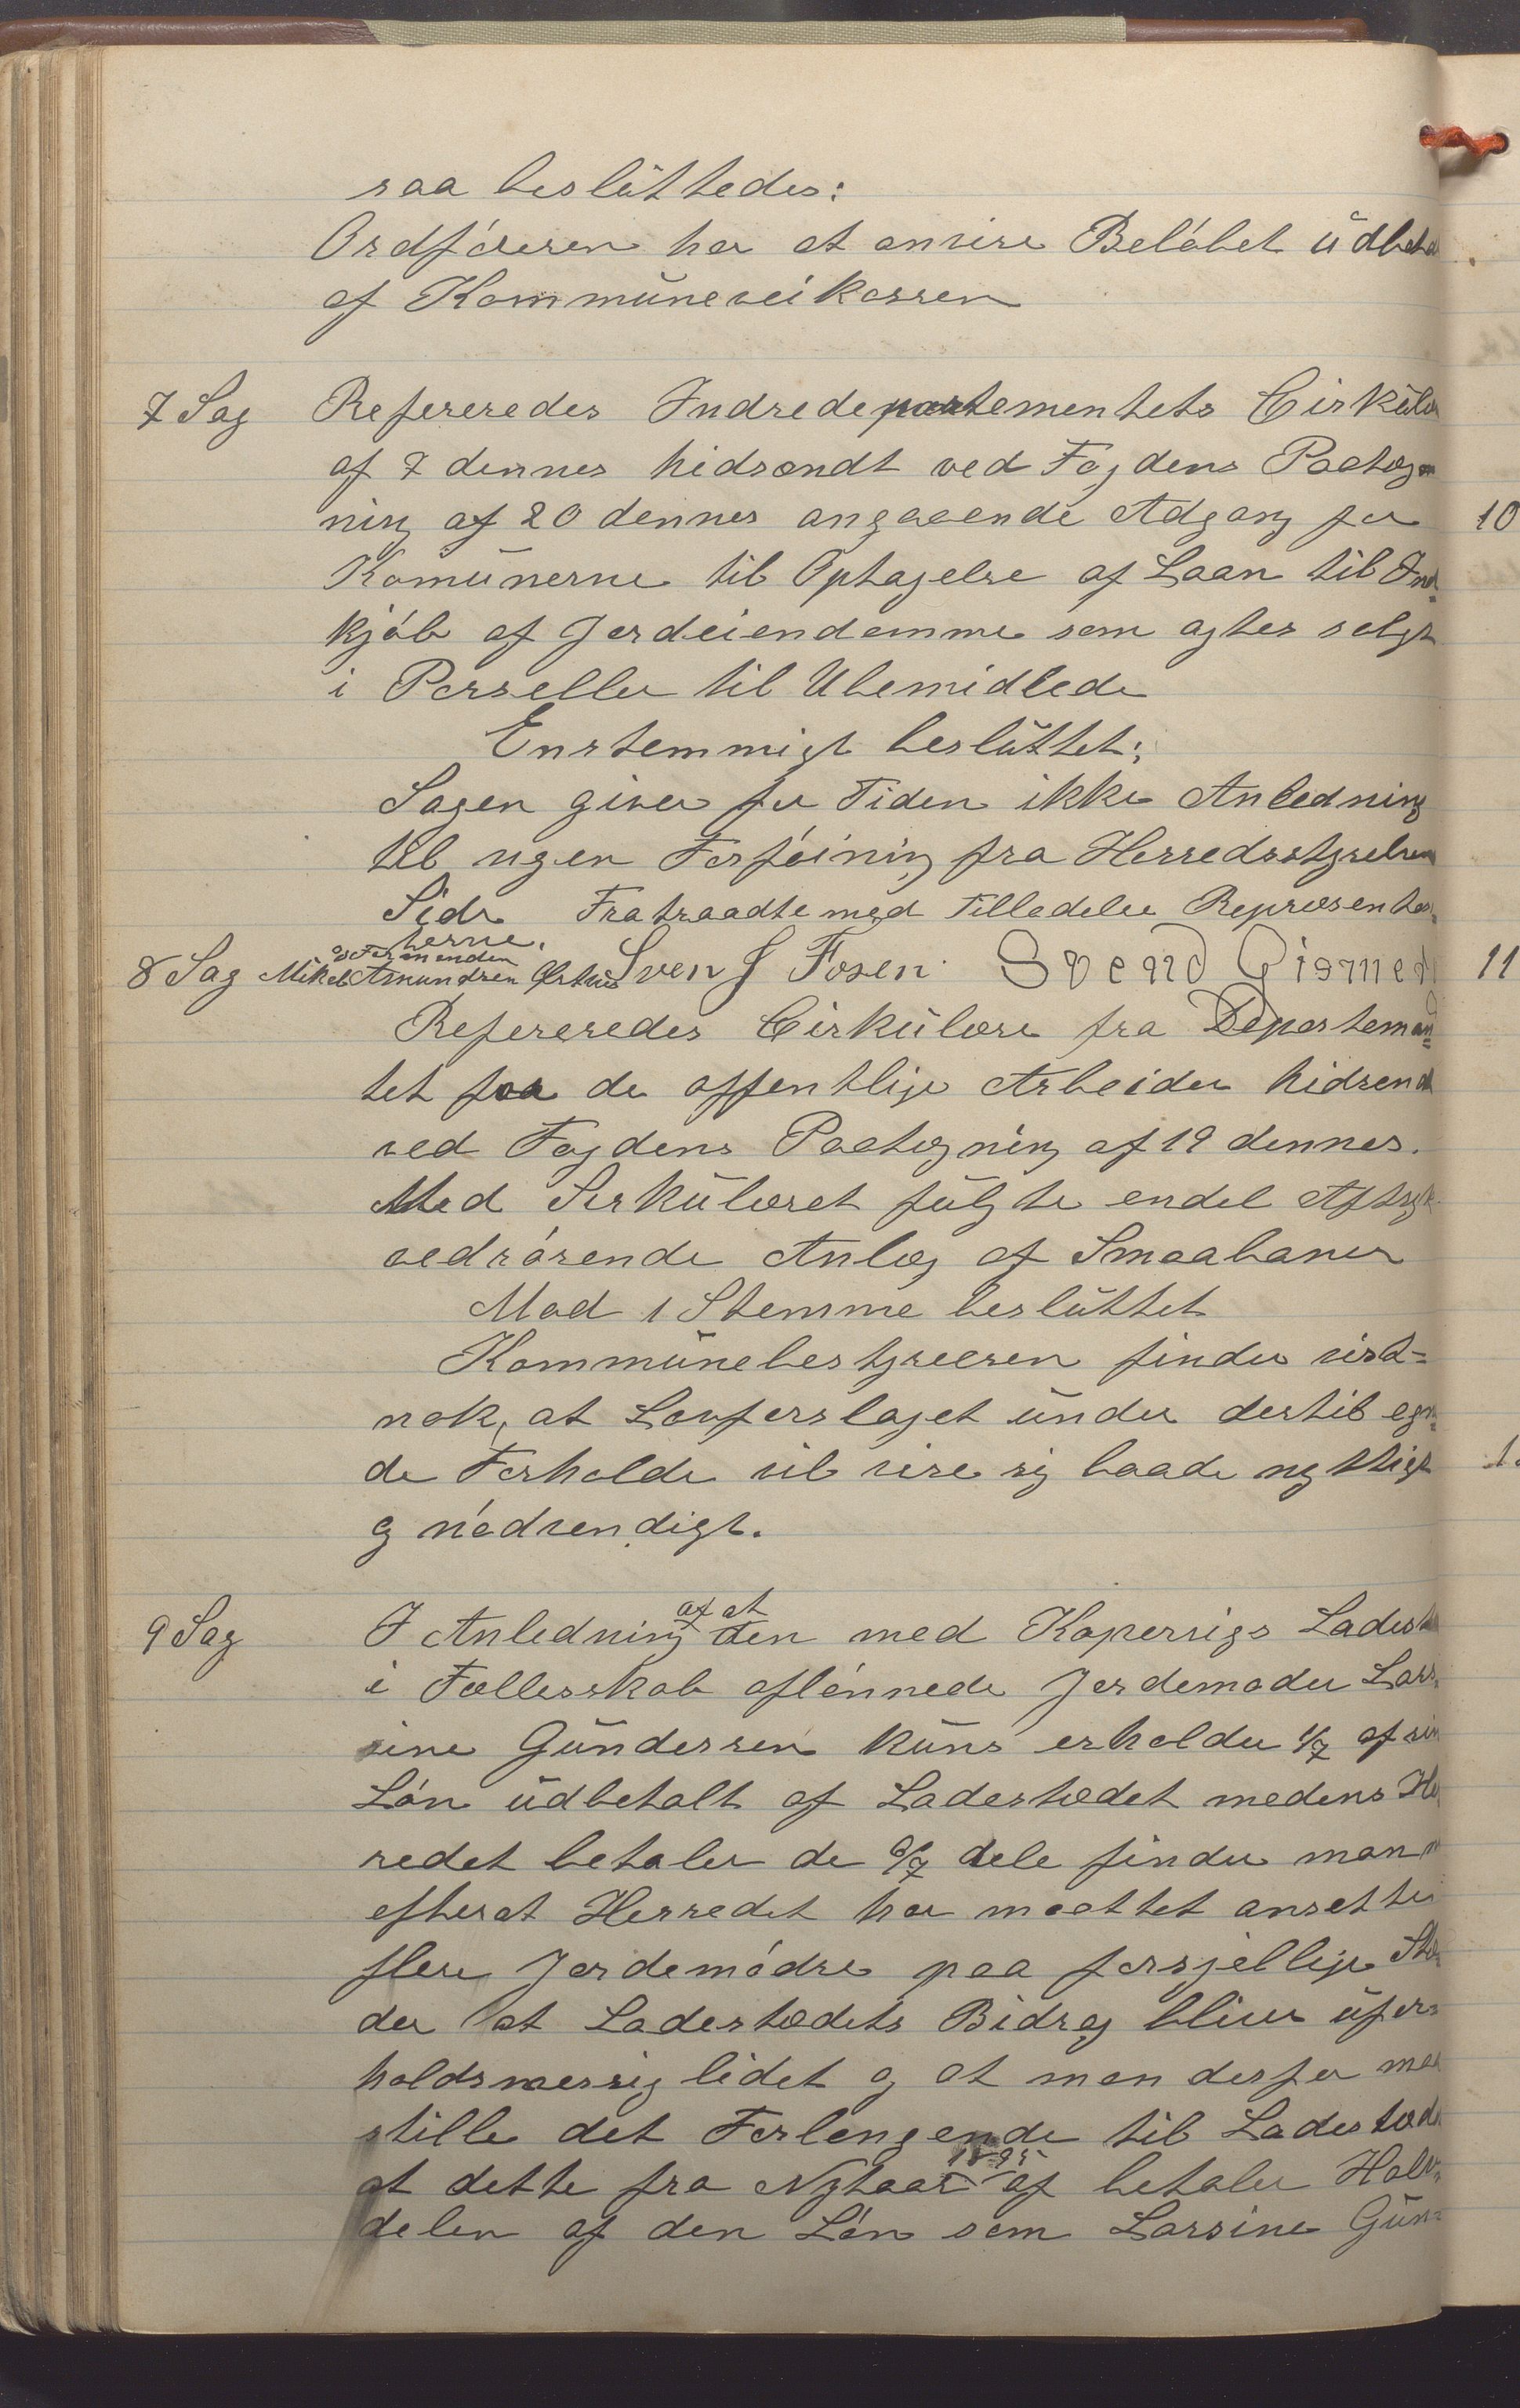 saa beslûttedes:
Ordføreren har at anvise Beløbet ûdbetalt
af Kommûneveikassen
7 Sag Refereredes Indredepartementets Cirkûlær
af 7 dennes hidsendt ved Fogdens Paateg
ning af 20 dennes angaaende Adgang for
Komûnerne til Optagelse af Laan til Ind
kjøb af Jordeiendomme som agtes solgt
i Parseller til Ubemidlede
Enstemmigt beslûttet:
Sagen giver for Tiden ikke Anledning
til nogen Forføining fra Herredsstyrelsen
Side Fratraadte med Tilladelse Repræsentan
terne.
8 Sag Mikel Amundsen Sven J Fosen. Svend Gismer
Refereredes Cirkûlære fra Departemen
tet for de offentlige Arbeider hidsendt
ved Fogdens Paategning af 19 dennes.
Med Serkûlæret fûlgte endel Aftryk
vedrørende Anlæg af Smaabaner
Mod 1 Stemme beslûttet
Kommûnebestyreren finder vist=
nok, at Lovforslaget ûnder dertil egn
de Forholde vil vise sig baade nyttigt
og nødvendigt.
9 Sag I Anledning af at den med Kopervigs Ladest
i Fællesskab aflønnede Jordemoder Lars
sine Gûndersen kûns erholder 1/7 af sin
Løn ûdbetalt af Ladestædet medens Her
redet betaler de 6/7 dele finder man
efterat Herredet har maattet ansette
flere Jordemødre paa forsjellige Stæ
der at Ladestædets Bidrag bliver ûfor=
holdsmessig lidet og at man derfor maa
stille det Forlengende til Ladestædet
at dette fra Nytaar 1895 af betaler Halv
delen af den Løn som Larsine Gûn=
10
11